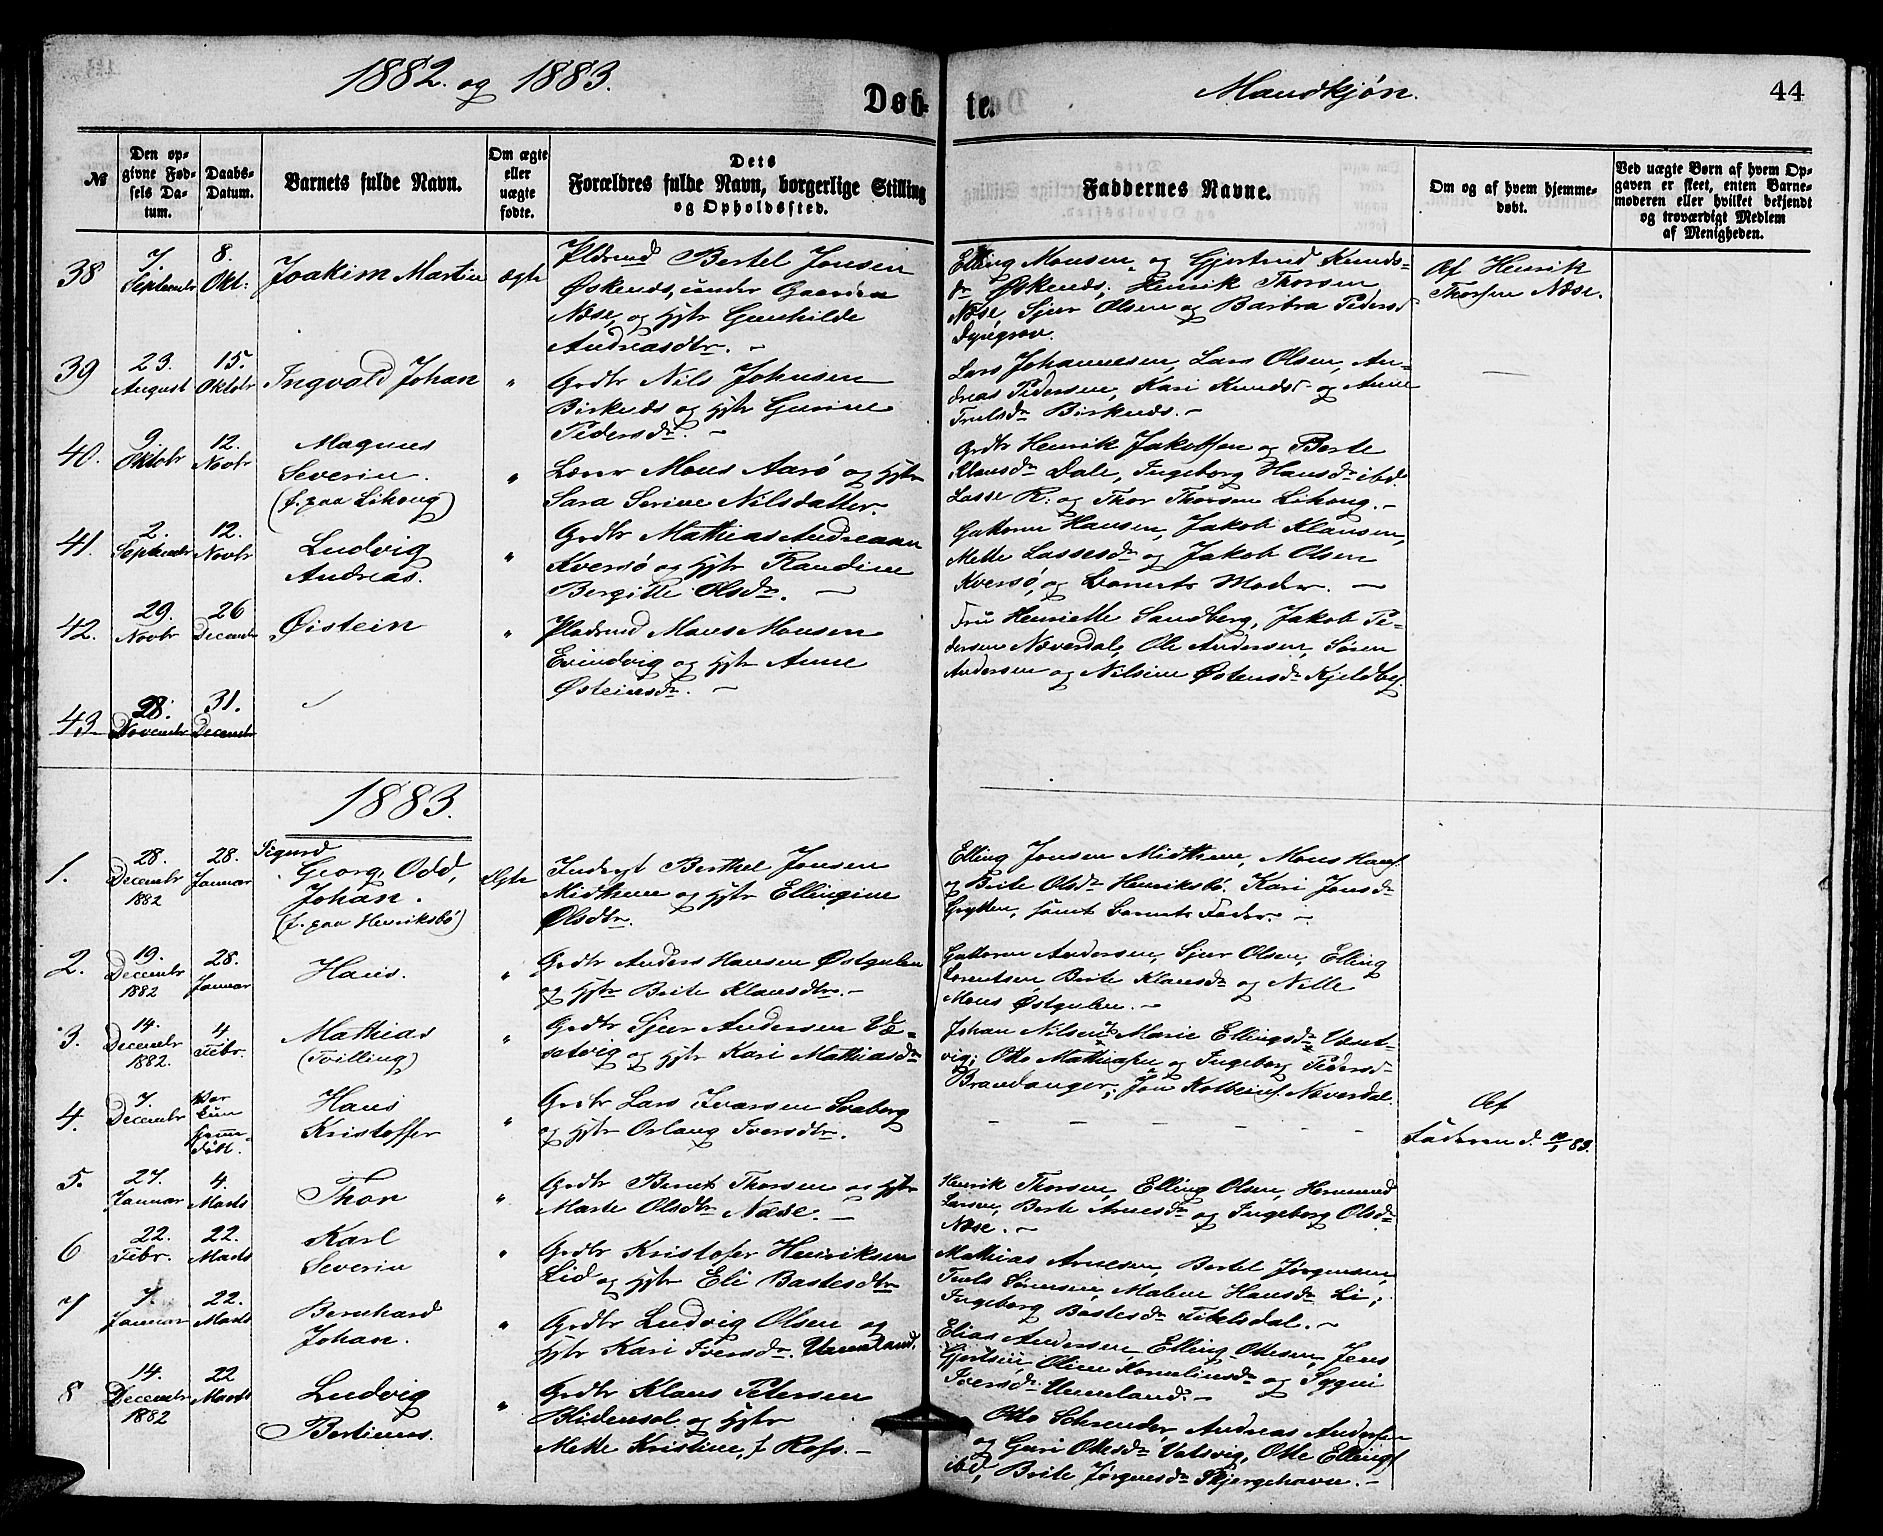 1882 og 1883.
Døb-
te.
Mandkjøn.
44
№
Den op-
givne Fød-
sels Da-
tum.
Daabs-
Datum.
Barnets fulde Navn.
Om ægte
eller
uægte
fødte.
Dets
Forældres fulde Navn, borgerlige Stilling
og Opholdssted.
Faddernes Navne.
Om og af hvem hjemme-
døbt.
Ved uægte Børn af hvem Op-
gaven er skeet, enten Barne-
moderen eller hvilket bekjendt
og troværdigt Medlem
af Menigheden.
38
7.
September
8.
Okt:
Joakim Martin
ægte
Pldsmd Bertel Jonsen
Øskenes, under Gaarden
Næse, og Hstr Gunhilde
Andreasdtr. -
Elling Monsen og Gjertrud Knuds-
dr Øskenes, Henrik Thorsen
Næse, Sjur Olsen og Barbra Pedersd
Dyregrov.
Af Henrik
Thorsen Næse.
39
23.
August
15.
Oktobr
Ingvald Johan
"
Grdbr Nils Johnsen
Birknes og Hstr Gurine
Pedersdr. -
Lars Johannesen, Lars Olsen, An-
dreas Pedersen, Kari Knudsd og Anne
Trulsdr Birknes. -
40.
9
Oktobr
12.
Novbr
Magnus
Severin.
(f. paa Lihoug)
"
Lærer Mons Aarø og Hstr
Sara Serine Nilsdatter.
Grdbr Henrik Jakobsen og Berte
Klausdr Dale, Ingeborg Hansdr ibd.
Lasse R. og Thor Thorsen Lihoug. -
41.
2.
Septembr
12.
Novbr
Ludvig
Andreas.
"
Grdbr Mathias Andreasen
Kversø og Hstr Randine
Bergitte Olsdr. -
Guttorm Hansen, Jakob Klausen,
Mette Lassesdr og Jakob Olsen
Kversø, og Barnets Moder. -
42.
29.
Novbr
26
Decembr
Øistein
"
Pladsmd Mons Monsen
Evindvig og Hstr Anne
Østeinsdr. -
Fru Henriette Sandberg, Jakob Pe-
dersen Næverdal, Ole Andersen, Søren
Andersen og Nilsine Østensdr Kjeldby.
43
28.
Novembr
31.
Decembr
1883.
1.
28.
Decembr
1882
28.
Januar
Sigurd
Georg, Odd,
Johan.
(f. paa Henriksbø)
Ægte
Inderst Berthel Jonsen
Midtun og Hstr Ellingine
Olsdtr.
Elling Jonsen Midthun, Mons Hans.
og Brite Olsdr Henriksbø. Kari Jonsdr
Grytten, samt Barnets Fader. -
2.
19.
Decembr
1882
28.
Januar
Hans.
"
Grdbr Anders Hansen Østgulen
og Hstr Brite Klausdtr. -
Guttorm Andersen, Sjur Olsen, Elling
Lorentsen, Brite Klausdr og Nille
Mons Østgulen. -
3.
14.
Decembr
1882.
4
Febr.
Mathias
(Tvilling)
"
Grdbr Sjur Andersen Væ-
ratvig og Hstr Kari Mathiasdr
Johan Nilsen, Marie Ellingsdr
vig; Otto Mathiasen og Ingeborg Pedersd
Brandanger; Jon Kolbeins. Nøverdal.
4.
7.
Decembr
Var
kun
hjemme-
døbt.
Hans
Kristoffer
"
Grdbr Lars Ivarsen Svaberg
og Hstr Orlaug Iversdtr.
- - - - - -
Af
Faderen d. 83.
5.
27.
Januar
4.
Marts
Thor
"
Grdbr Bernt Thorsen og Hstr
Marte Olsdtr Næse. -
Henrik Thorsen, Elling Olsen,
Larsen, Berte Arnesdr og Ingeborg Olsdr
Næse. -
6
22.
Febr.
22.
Marts
Karl
Severin
"
Grdbr Kristofer Henriksen
Lid og Hstr Eli Bastesdtr
Mathias Arnesen, Bertel Jørgensen,
Truls Sørensen, Malene Hansdr Li;
Ingeborg Bastesdr Tikelsdal. -
7
7.
Januar
22.
Marts
Bernhard
Johan.
"
Grdbr Ludvig Olsen og
Hstr Kari Iversdr. Unneland.
Elias Andersen, Elling Ottesen, Jens
Gjertsen, Oline Kornelinsdr og Sygni
Iversdr Unneland. -
8
14.
Decembr
1882
22
Marts
Ludvig
Bertinus.
"
Grdbr Klaus Petersen
og Hstr
Mette Kristine, f. Ross. -
Otto Schrender, Andreas Andersen
og Guri Ottesdr Vatsvig, Otte Ellings
ibd, Brite Jørgensdr Skjergehavn. -